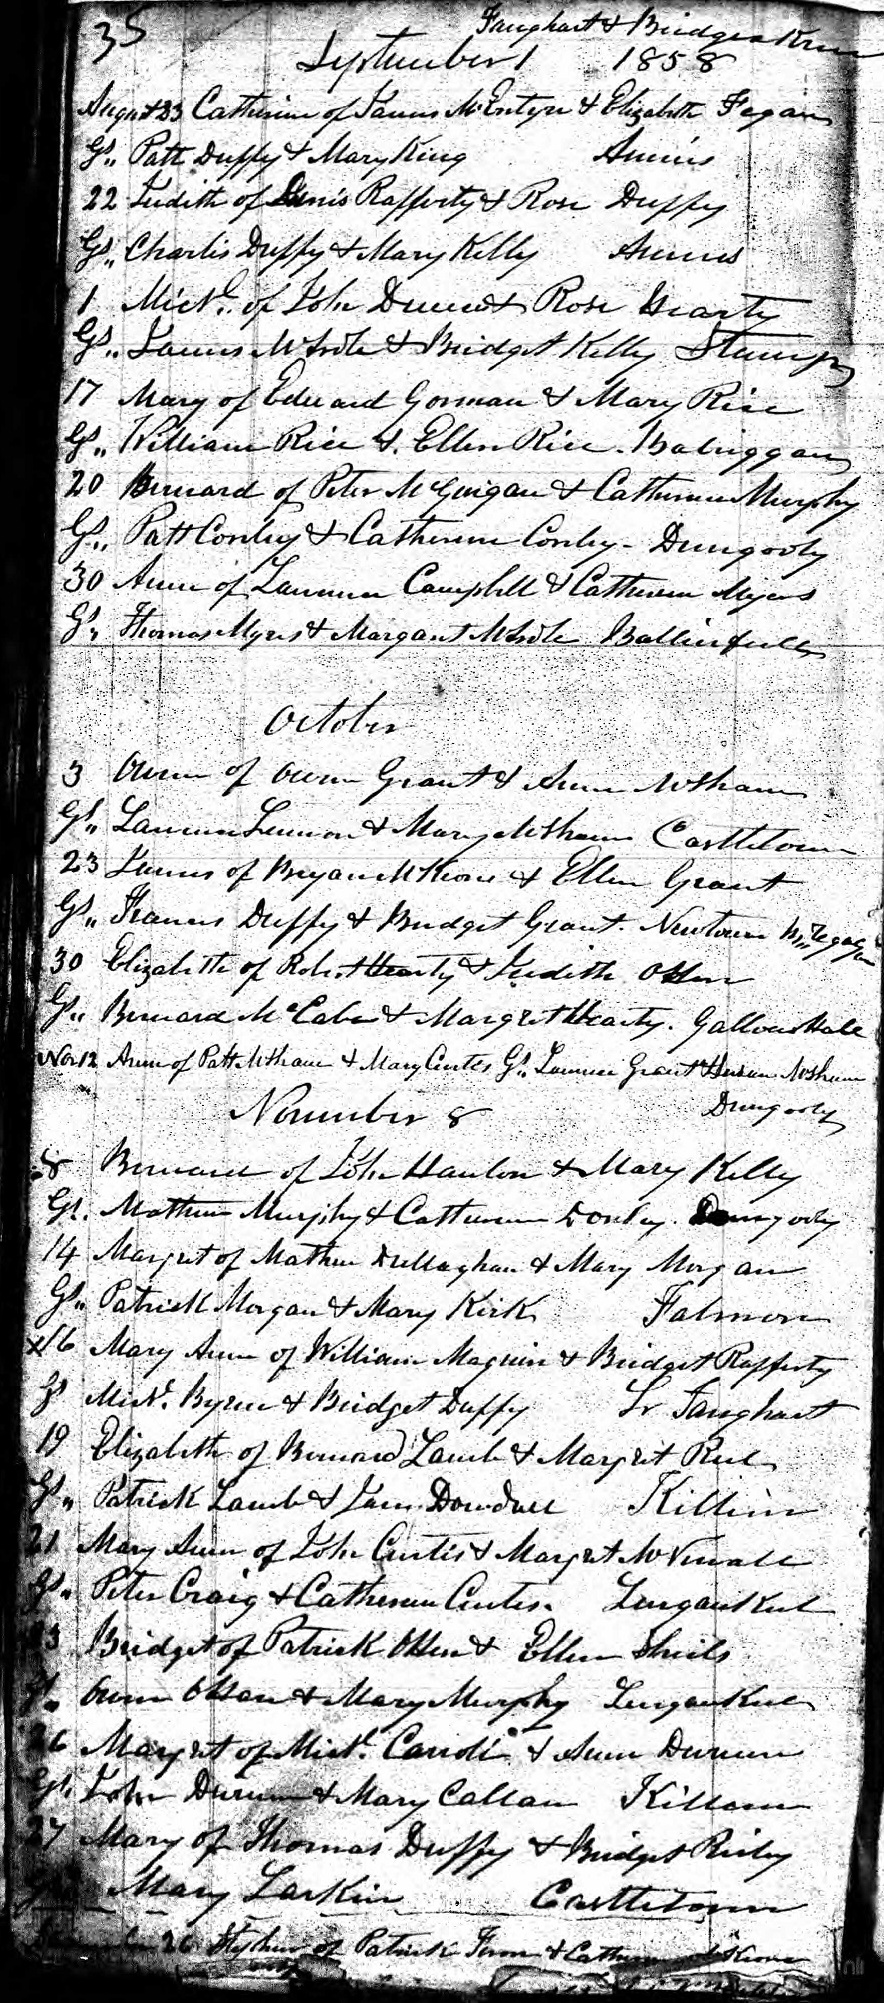 35
Faughart & Bridgeakrin
September 1 1858
August 23 Catherine of James McEntyre & Elizabeth Fegan
Gs.. Patt Duffy & Mary King Annies
22 Judith of Denis Rafferty & Rose Duffy
Gs.. Charles Duffy & Mary Kelly Annies
1 Michl. of John Dunne & Rose Hearty
Gs.. James & Bridget Kelly
17 Mary of Edward Gorman & Mary Rice
Gs.. William Rice & Ellen Rice. Balriggan
20 Bernard of Peter McGuigan & Catherine Murphy
Gs.. Patt Conley & Catherine Conley - Dungooly
30 Anne of Laurence Campbell & Catherine Myers
Gs.. Thomas Myers & Margaret
October
3 Owen of Owen Grant & Anne McShane
Gs.. Lennon & Mary McShane Castletown
23 James of Bryan McKeone & Ellen Grant
Gs.. Francis Duffy & Bridget Grant. Newtown
30 Elizabeth of Robert Hearty & Judith
Gs.. Bernard McCabe & Margret Hearty. Gallows Hill
Nov 12 Anne of Patt McShane & Mary Curtis Gs. Laurence Grant & Susan McShane
Dungooly
November 8
8 Bernard of John Hanlon & Mary Kelly
Gs. Mathew Murphy & Catherine Donley. Dungooly
14 Margret of Mathew Dullaghan & Mary Morgan
Gs.. Patrick Morgan & Mary Kirk
x16 Mary Anne of William Maginn & Bridget Rafferty
Gs Michl. Byrne & Bridget Duffy Lr Faughart
19 Elizabeth of Bernard Lamb & Margret
Gs.. Patrick Lamb & Jane Dowdall Killin
21 Mary Anne of John Curtis & Margret
Gs.. Peter Craig & Catherine Curtis. Lurgankeel
23 Bridget of Patrick & Ellen Sheils
Gs.. Owen & Mary Murphy Lurgankeel
26 Margret of Michl. Carroll & Anne Durnan
Gs. John Durnan & Mary Callan
27 Mary of Thomas Duffy & Bridget
Mary Larkin Castletown
26 Stephen of Patrick & Catherine